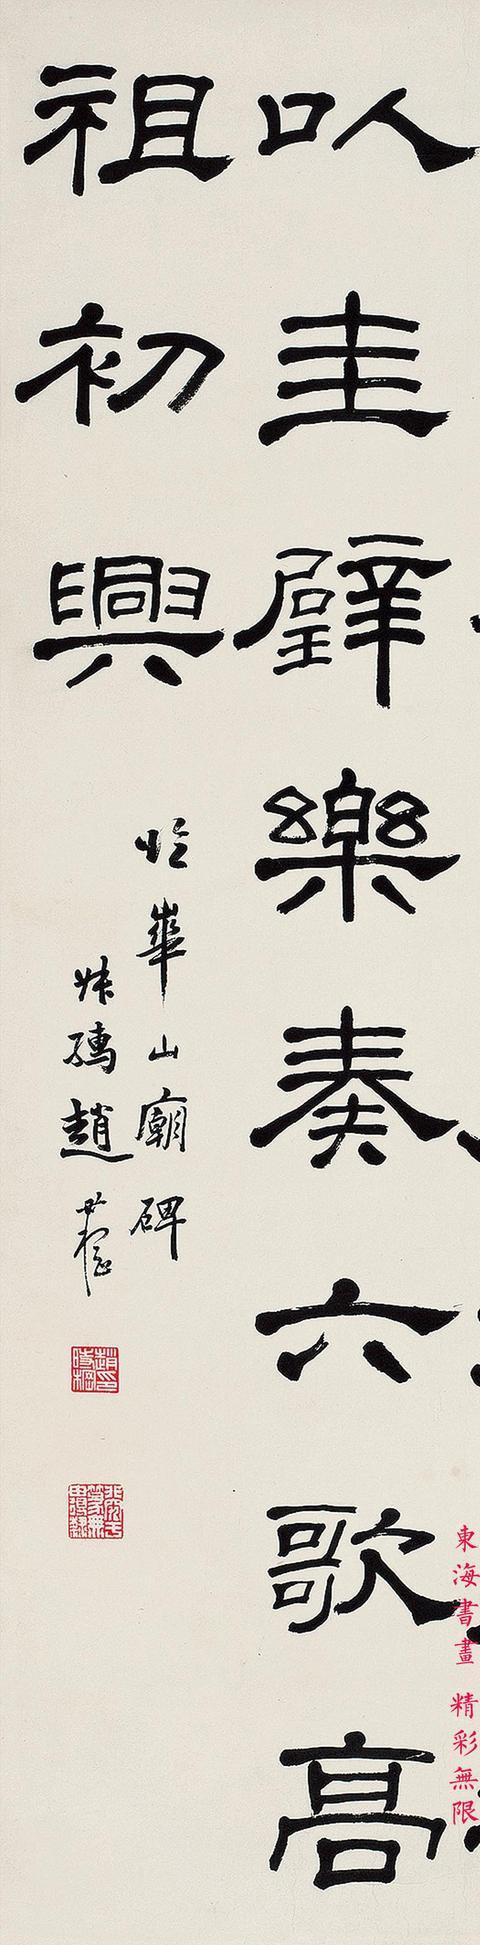 以圭璧樂奏六歌高
祖初興
臨華山廟碑
叔孺趙時棡
趙印時棡
東海書畫 精彩無限